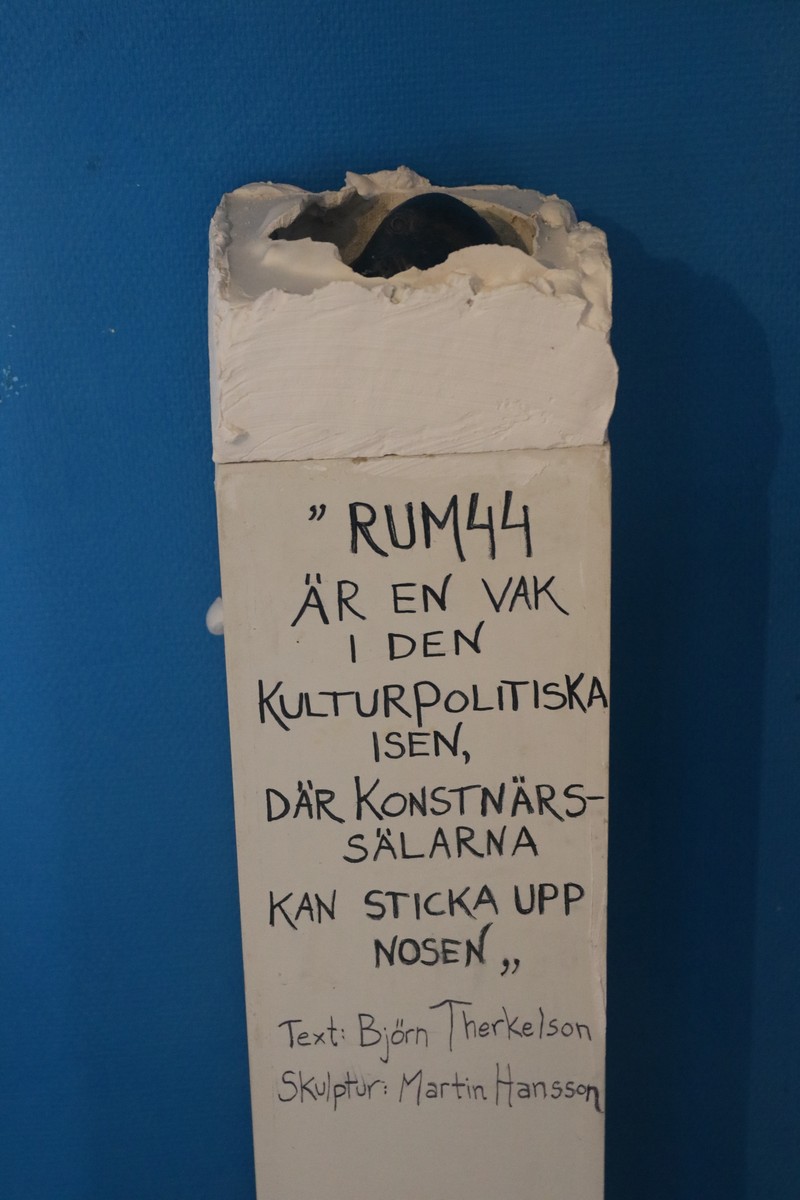 ” RUM44
ÄR EN VAK
I DEN
KULTURPOLITISKA
ISEN,
DÄR KONSTNÄRS-
SÄLARNA
KAN STICKA UPP
NOSEN „
Text: Björn Therkelson
Skulptur: Martin Hansson